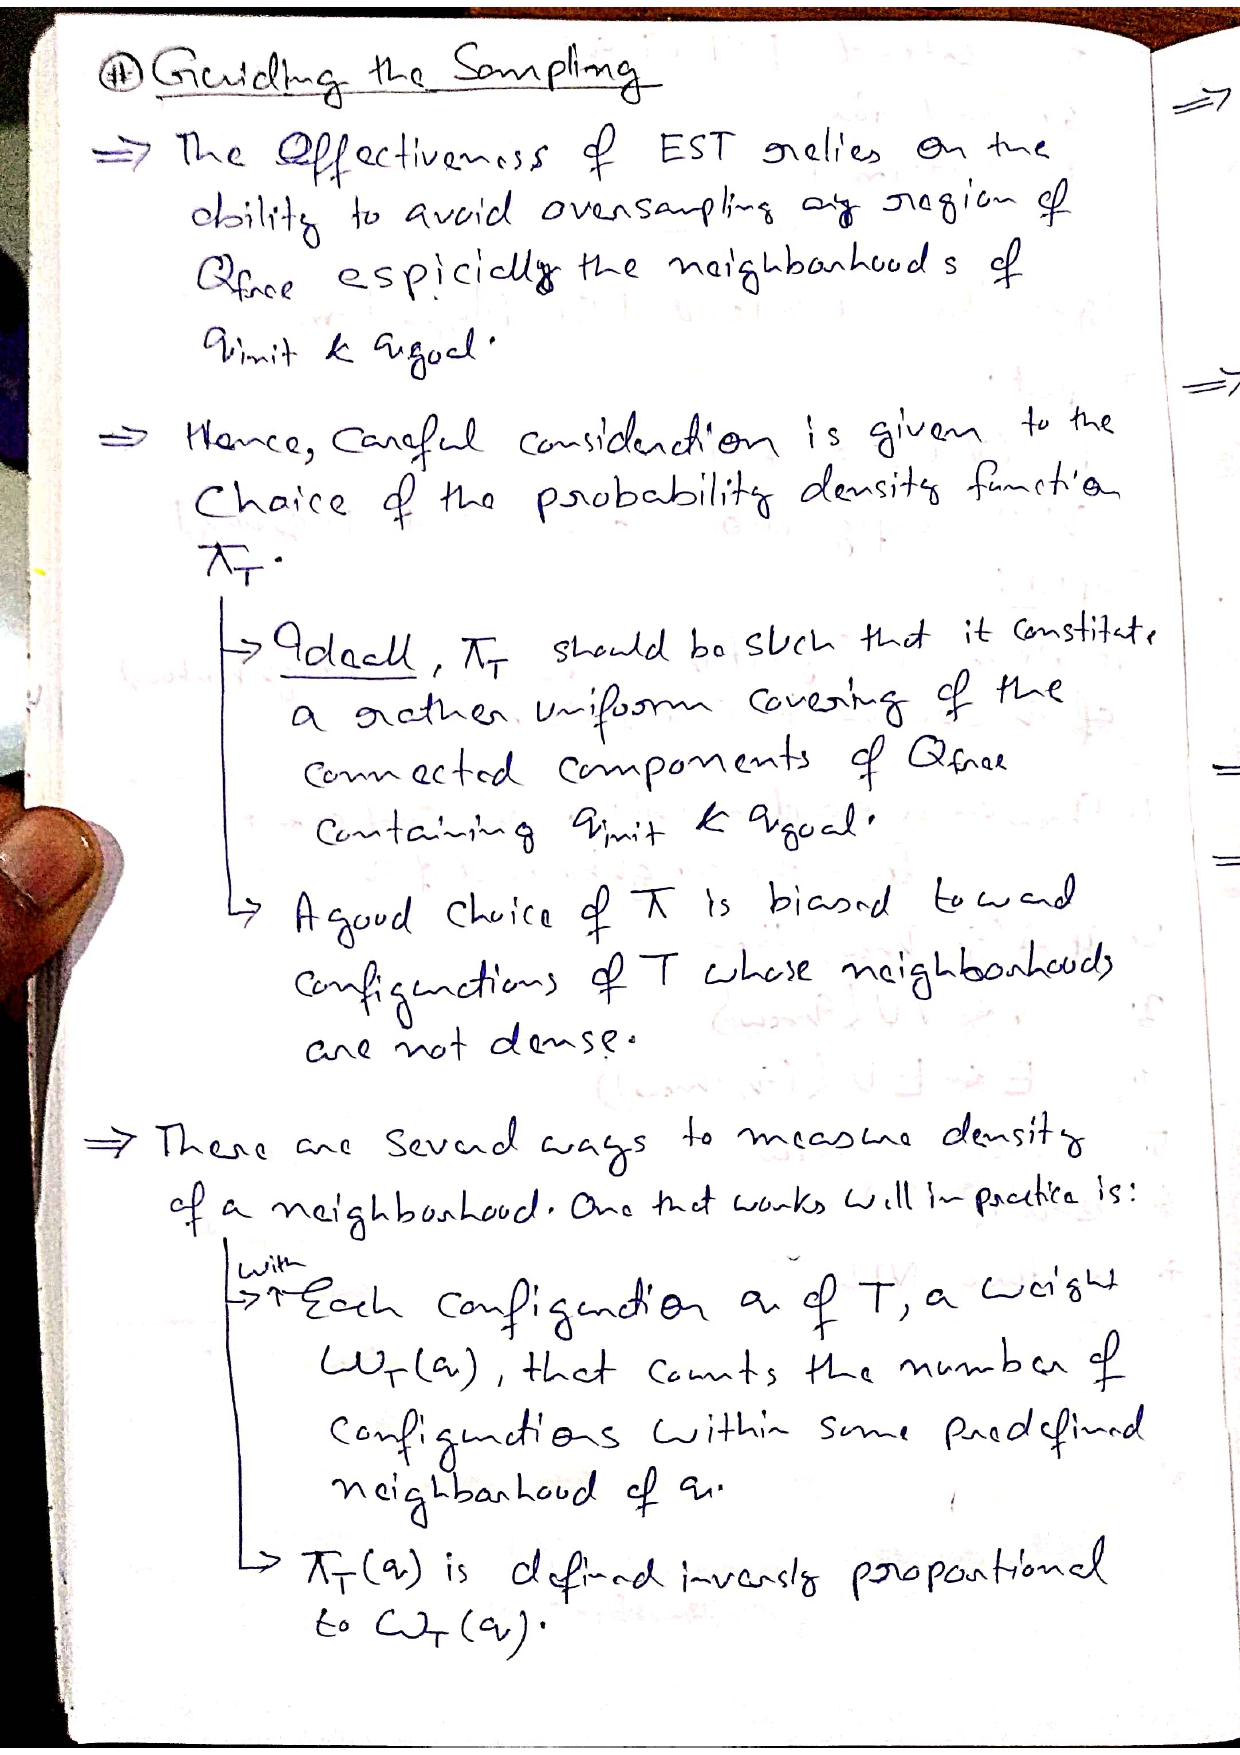 # Guiding the Sampling
⇒ The Effectiveness of EST relies on the
ability to avoid oversampling any region of
Qfree espicially the neighborhoods of
qinit & qgoal.
⇒ Hence, Careful consideration is given to the
Choice of the probability density function
πT.
↳ Ideall, πT should be such that it constitute
a rather uniform covering of the
connected components of Qfree
containing qinit & qgoal.
↳ A good choice of π is biased toward
configurations of T whose neighborhoods
are not dense.
⇒ There are several ways to measure density
of a neighborhood. One that works well in practice is:
with
↳ ↑ Each configuration q of T, a weight
ωT(q), that counts the number of
configurations within some predefined
neighborhood of q.
↳ πT(q) is defined inversly proportional
to ωT(q).